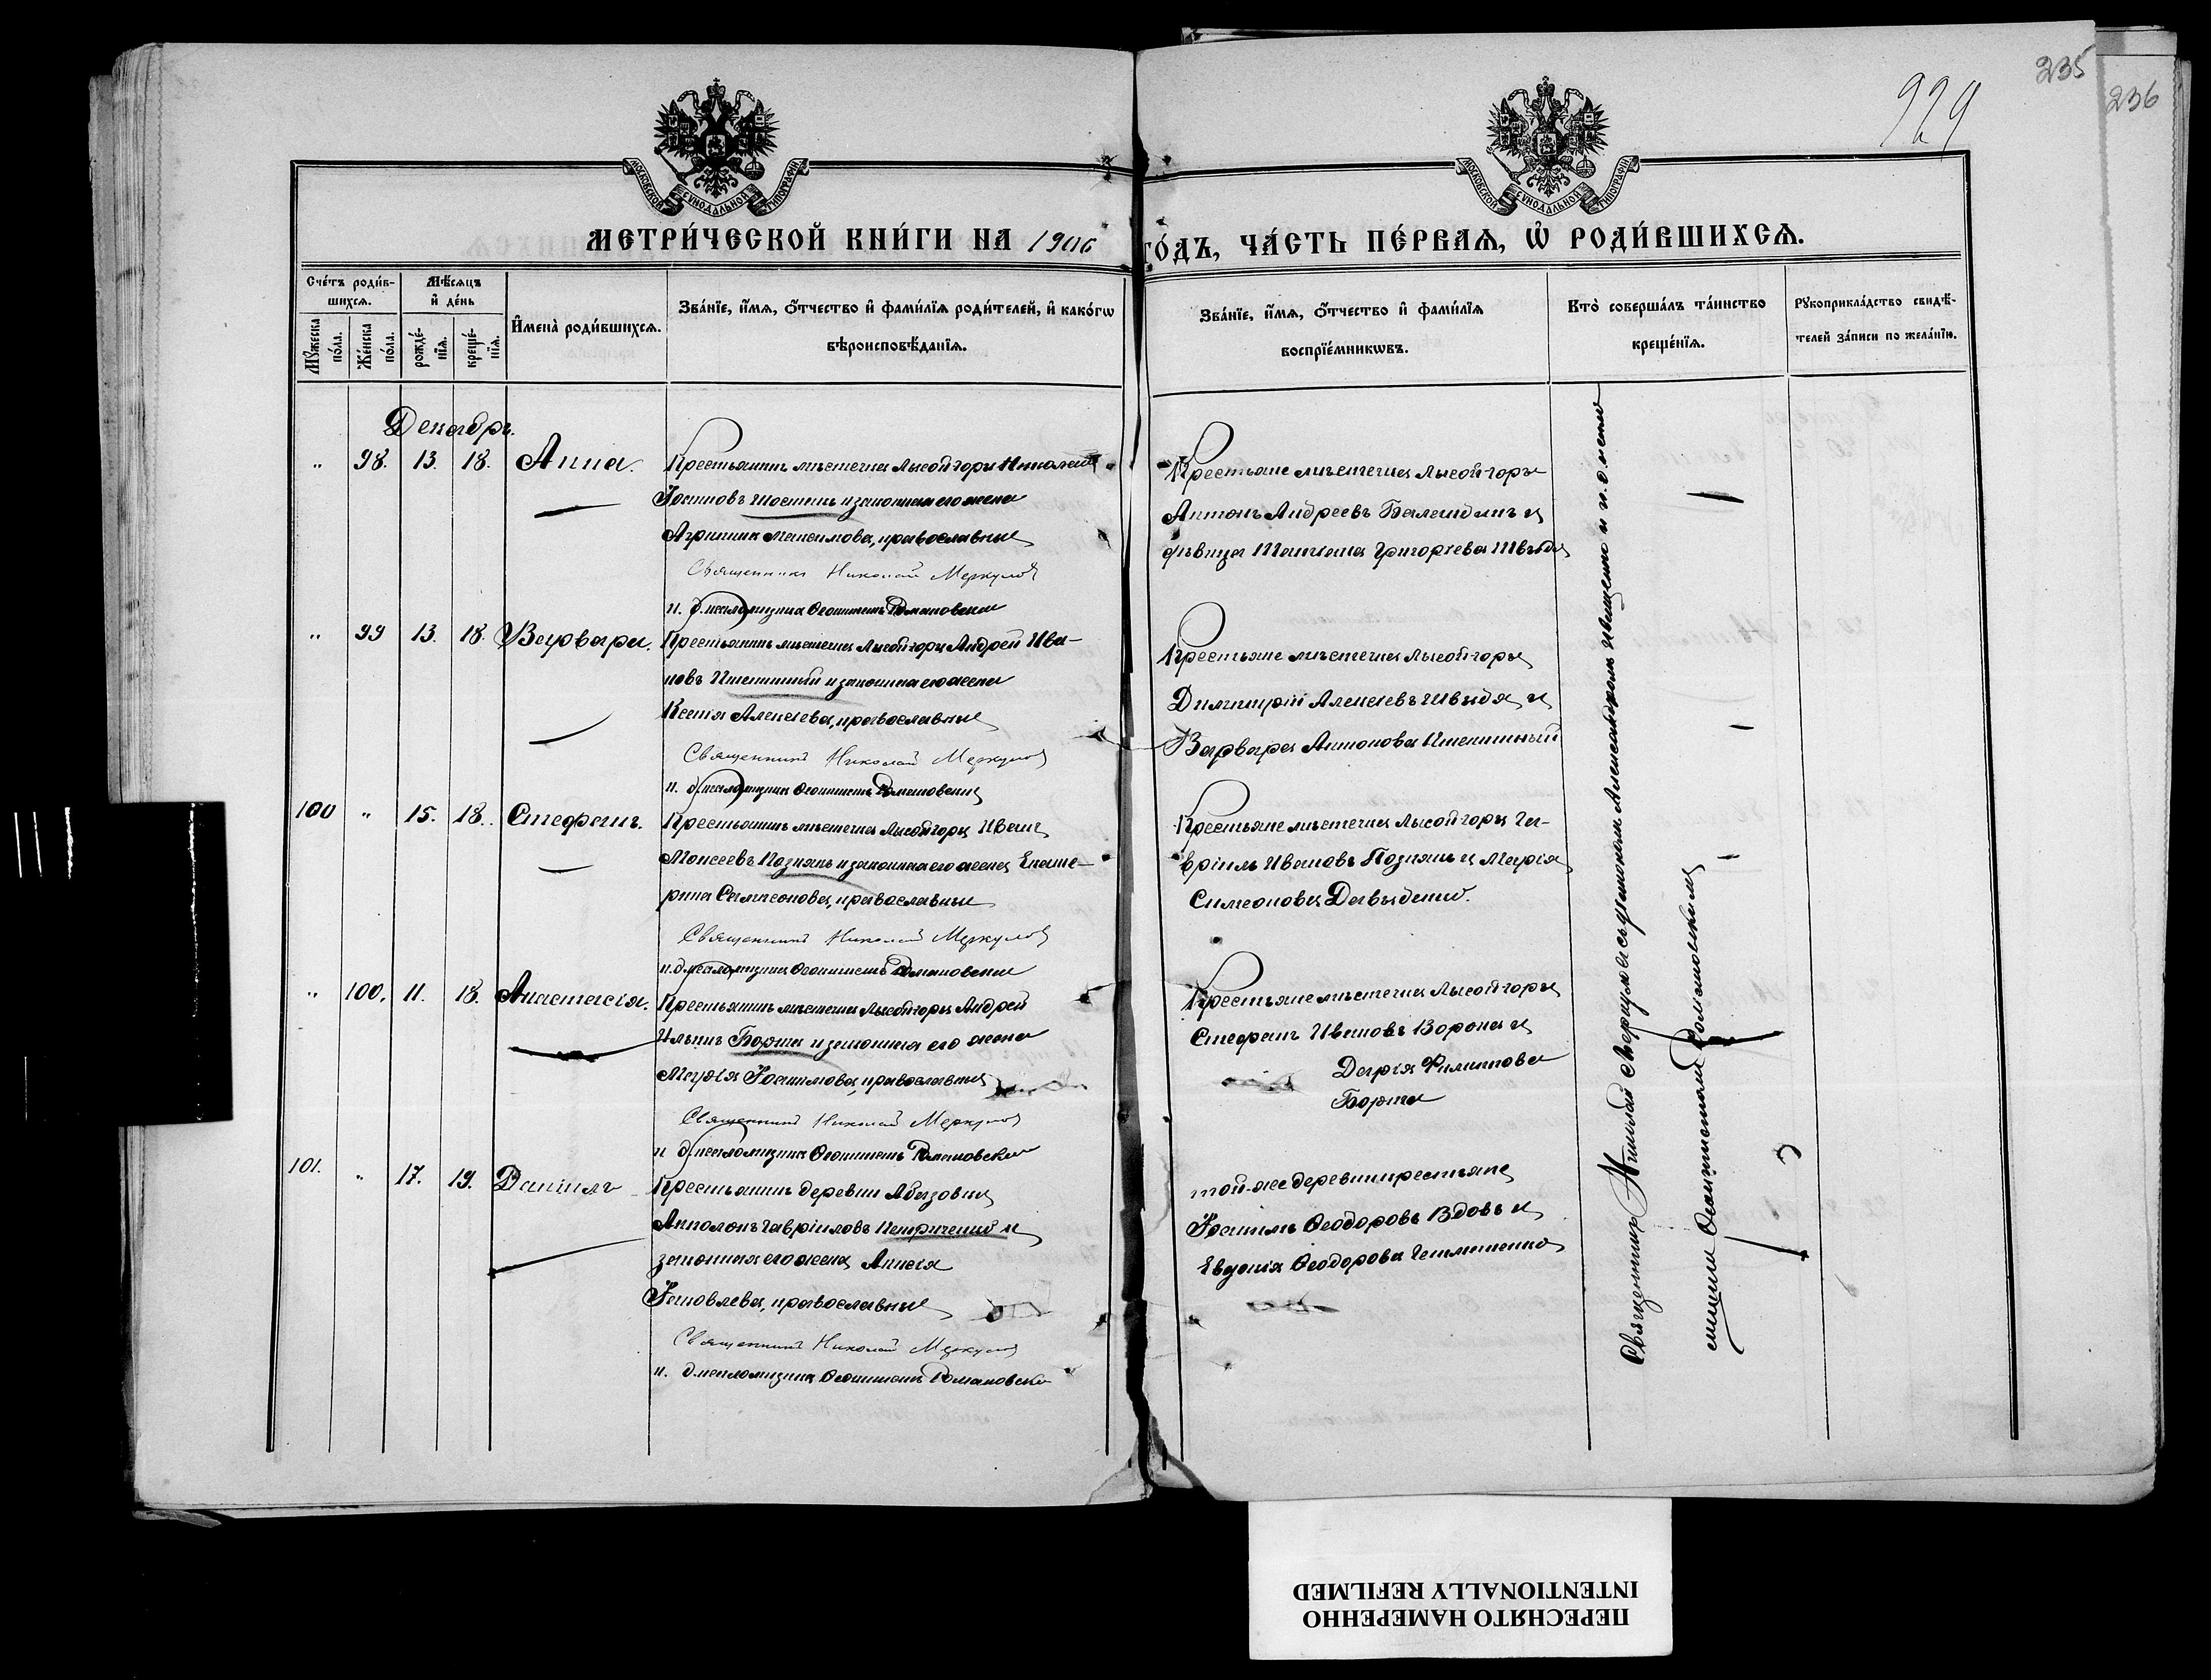 235
236
929
МОСКОВСКОЙ СѴНОДАЛЬНОЙ ТИПОГРАФІИ
МОСКОВСКОЙ СѴНОДАЛЬНОЙ ТИПОГРАФІИ
МЕТРИ́ЧЕСКОЙ КНИ́ГИ НА 1906 ГО́ДЪ, ЧА́СТЬ ПЕ́РВАѦ, Ѡ҆ РОДИ́ВШИХСѦ.
Сче́тъ роди́в-
шихсѧ.
Мꙋ́жеска по́ла.
Же́нска по́ла.
Мѣ́сѧцъ и҆ де́нь
рожде́-
нїѧ.
креще́-
нїѧ.
И҆мена̀ роди́вшихсѧ.
Зва́нїе, и҆́мѧ, ѻ҆́тчество и҆ фами́лїѧ роди́телей, и҆ како́гѡ
вѣроисповѣ́данїѧ.
Зва́нїе, и҆́мѧ, ѻ҆́тчество и҆ фами́лїѧ
воспрїе́мникѡвъ.
Кто̀ соверша́лъ та́инство
креще́нїѧ.
Рꙋкоприкла́дство свидѣ́-
телей за́писи по жела́нїю.
Декабрь.
" 98. 13. 18. Анна.
Крестьянинъ мѣстечка Лысойгоры Николай
Іоанновъ и законная его жена
Агрипина Максимова, православные
Священникъ Николай Меркулов
и. д. псаломщика Романовский
Крестьяне мѣстечка Лысойгоры
Антонъ Андреевъ и
дѣвица Татіана Григоріева Швыдя
" 99 13. 18. Варвара.
Крестьянинъ мѣстечка Лысойгоры Андрей Ива-
новъ Пшеничный и законная его жена
Ксенія Алексіева, православные
Священникъ Николай Меркулов
и. д. псаломщика Романовский
Крестьяне мѣстечка Лысойгоры
Димитрій Алексіевъ Швыдя и
Варвара Антонова Пшеничный
100 " 15. 18. Стефанъ.
Крестьянинъ мѣстечка Лысойгоры Иванъ
Моисеевъ Познякъ и законная его жена Екате-
рина Самсонова, православные
Священникъ Николай Меркулов
и. д. псаломщика Романовский
Крестьяне мѣстечка Лысойгоры Га-
вріилъ Ивановъ Познякъ и Марія
Симеонова Давыденко.
" 100. 11. 18. Анастасія.
Крестьянинъ мѣстечка Лысойгоры Андрей
Ильинъ Борта и законная его жена
Марія Іоакимова, православные
Священникъ Николай Меркулов
и. д. псаломщика Романовский
Крестьяне мѣстечка Лысойгоры
Стефанъ Ивановъ Ворона и
Дарія Филиппова
Борта
101. " 17. 19. Даніилъ
Крестьянинъ деревни Абазовки
Апполонъ Гавріиловъ Петриченко и
законная его жена Анна
Іаковлева, православные
Священникъ Николай Меркулов
и. д. псаломщика Романовский
той-же деревни крестьяне
Іоакимъ Ѳеодоровъ Вдовъ и
Евдокія Ѳеодорова
Священникъ Николай Меркуловъ
ПЕРЕСНЯТО НАМЕРЕННО
INTENTIONALLY REFILMED